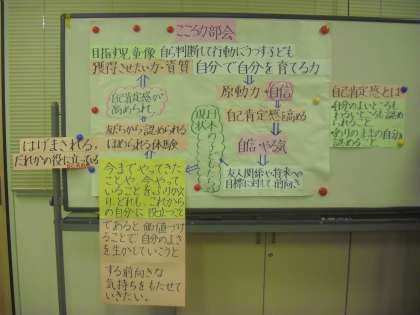 こころ力部会
目指す児童像 自ら判断して行動にうつす子ども
獲得させたい力・資質 自分で自分を育てる力
自己肯定感が
高められ、
原動力 自信
自己肯定感とは
自分のよいところも
自己肯定感を高める
友だちから認められる
ほめられる体験
現状
自信 やる気
ありのままの自分を
はげまされる,
だれかの役に立っている
友人関係や将来への
目標に対して前向き
今までやってきた
ことや
どれも、これからの
自分に役立つ
であると価値づけ
ることで、自分のよさ
を生かしていこうと
する前向きな
気持ちをもたせて
いきたい。